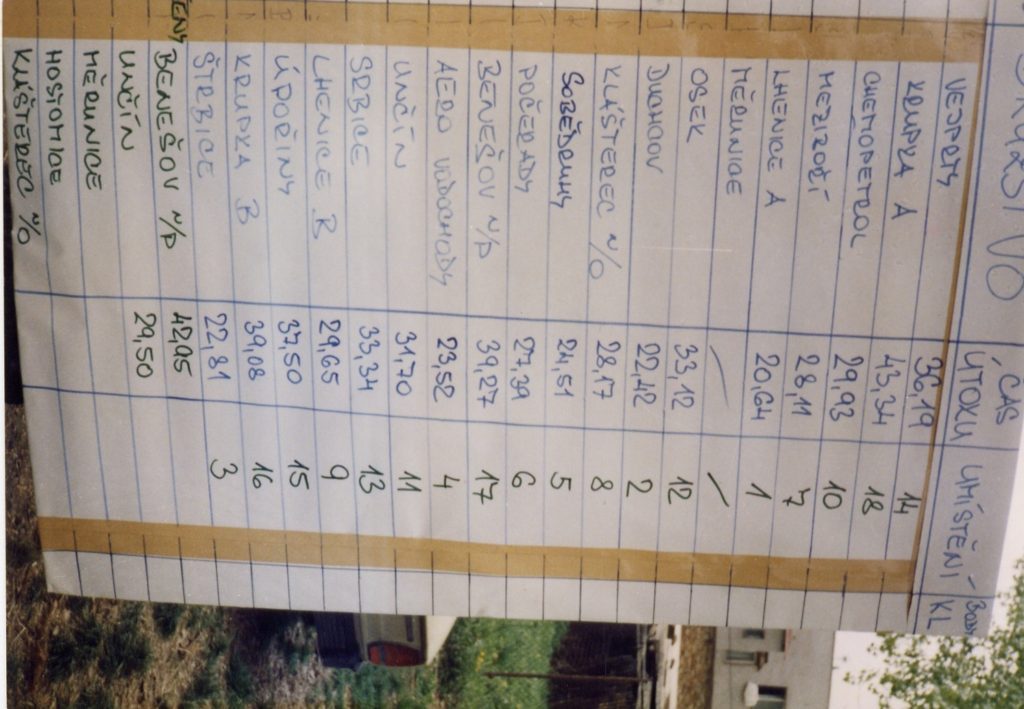 DRUŽSTVO ČAS ÚTOKU UMÍSTĚNÍ Body KL
VEJPRTY 36,19 14
KRUPKA A 43,34 18
CHEMOPETROL 29,93 10
MEZIBOŘÍ 28,11 7
LHENICE A 20,64 1
MĚRUNICE / /
OSEK 33,12 12
DUCHCOV 22,12 2
KLÁŠTEREC N/O 28,17 8
SOBĚDRUHY 24,51 5
POČERADY 27,39 6
BENEŠOV N/P 39,27 17
AERO VODOCHODY 23,52 4
UNČÍN 31,70 11
SRBICE 33,34 13
LHENICE B 29,65 9
ÚPOŘINY 37,50 15
KRUPKA B 39,08 16
ŠTRBICE 22,81 3
BENEŠOV N/P 42,95
UNČÍN 29,50
MĚRUNICE
HOSTOMICE
KLÁŠTEREC N/O